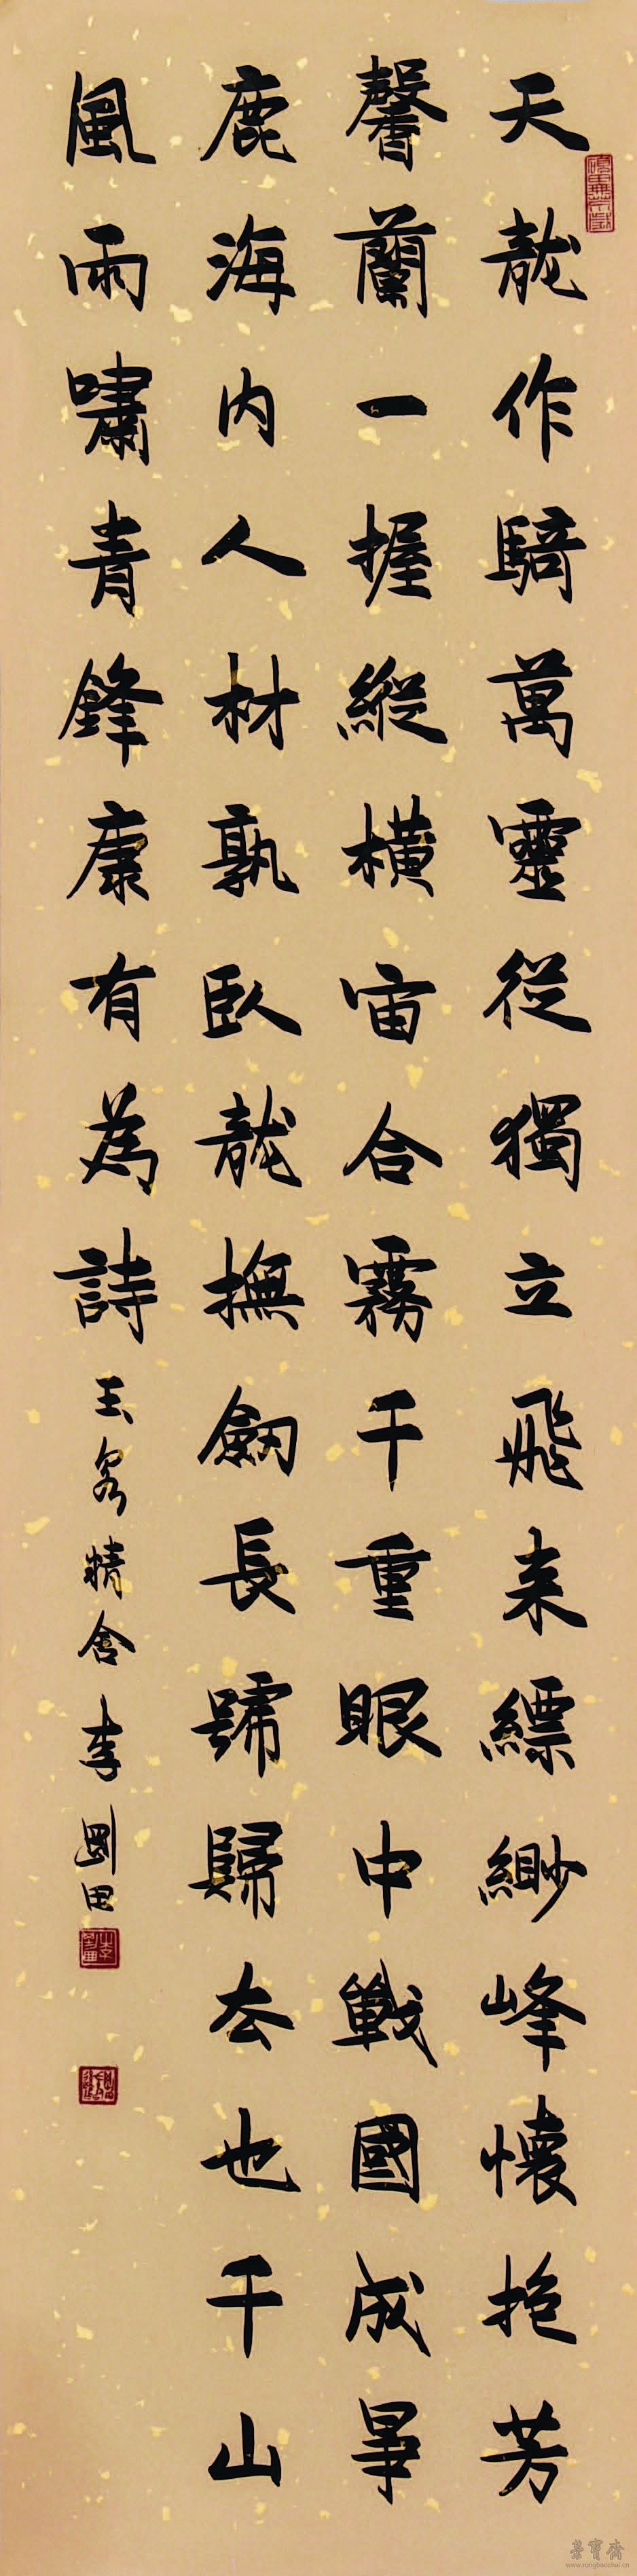 天龍作騎萬靈從獨立飛来縹緲峰懷抱芳
馨蘭一握縱橫宙合霧千重眼中戰國成爭
鹿海內人材孰臥龍撫劒長號歸去也千山
風雨嘯青鋒康有為詩
玉泉精舍李剛田
榮寶齋
www.rongbaozhai.cn